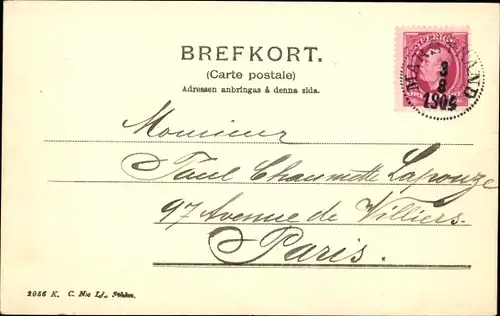 BREFKORT.
(Carte postale)
Adressen anbringas å denna sida.
SVERIGE
MARSTRAND
3
8
1904
Monsieur
Paul Chaumette Lapouze
97 Avenue de Villiers.
Paris.
2056 K. C. N:s Lj., Sthlm.